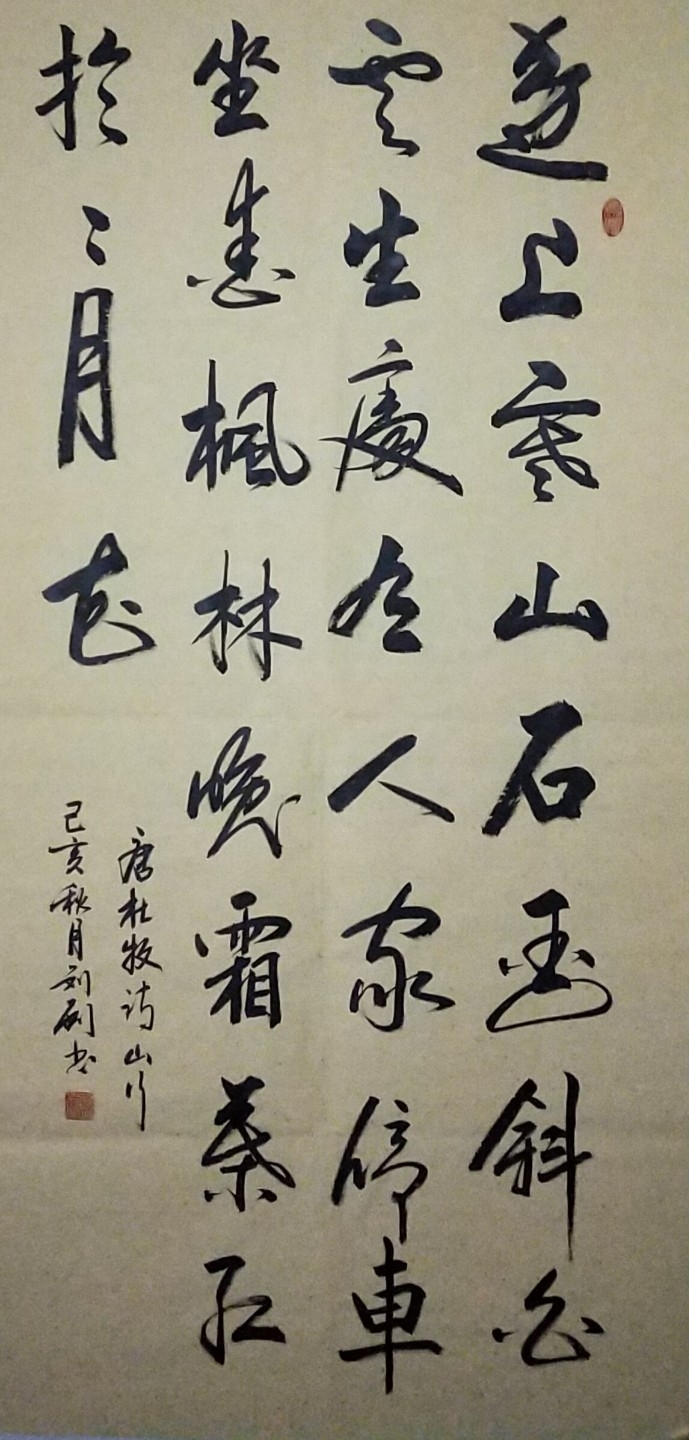 遠上寒山石徑斜白
雲生處有人家停車
坐愛楓林晚霜葉紅
於二月花
唐杜牧诗山行
己亥秋月刘书